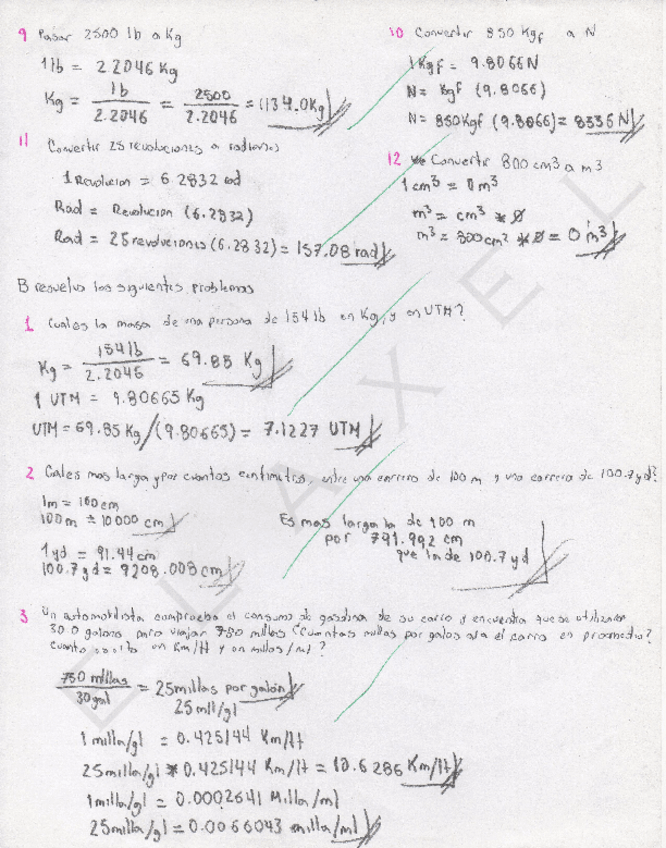 9 Pasar 2500 lb a Kg
1 lb = 2.2046 Kg
Kg = lb / 2.2046 = 2500 / 2.2046 = 1134.0 Kg
10 Convertir 850 Kgf a N
1 Kgf = 9.8066 N
N = Kgf (9.8066)
N = 850 Kgf (9.8066) = 8336 N
11 Convertir 25 revoluciones a radianes
1 Revolucion = 6.2832 rad
Rad = Revolucion (6.2832)
Rad = 25 revoluciones (6.2832) = 157.08 rad
12 Convertir 800 cm³ a m³
1 cm³ = 0 m³
m³ = cm³ * 0
m³ = 800 cm² * 0 = 0 m³
B resuelva los siguientes problemas
1 Cual es la masa de una persona de 154 lb en Kg, y en UTM?
Kg = 154 lb / 2.2046 = 69.85 Kg
1 UTM = 9.80665 Kg
UTM = 69.85 Kg / (9.80665) = 7.1227 UTM
2 Cual es mas larga y por cuantos centimetros, entre una carrera de 100 m y una carrera de 100.7 yd?
1m = 100 cm
100m = 10000 cm
1 yd = 91.44 cm
100.7 yd = 9208.008 cm
Es mas larga la de 100 m
por 791.992 cm
que la de 100.7 yd
3 Un automovilista comprueba el consumo de gasolina de su carro y encuentra que se utilizaron
30.0 galones para viajar 750 millas ¿Cuantas millas por galon da el carro en promedio?
Cuanto en Km/lt y en millas/ml?
750 millas / 30 gal = 25 millas por galón
25 mll/gl
1 milla/gl = 0.425144 Km/lt
25 milla/gl * 0.425144 Km/lt = 10.6286 Km/lt
1 milla/gl = 0.0002641 Milla/ml
25 milla/gl = 0.0066043 milla/ml
E L A X E L